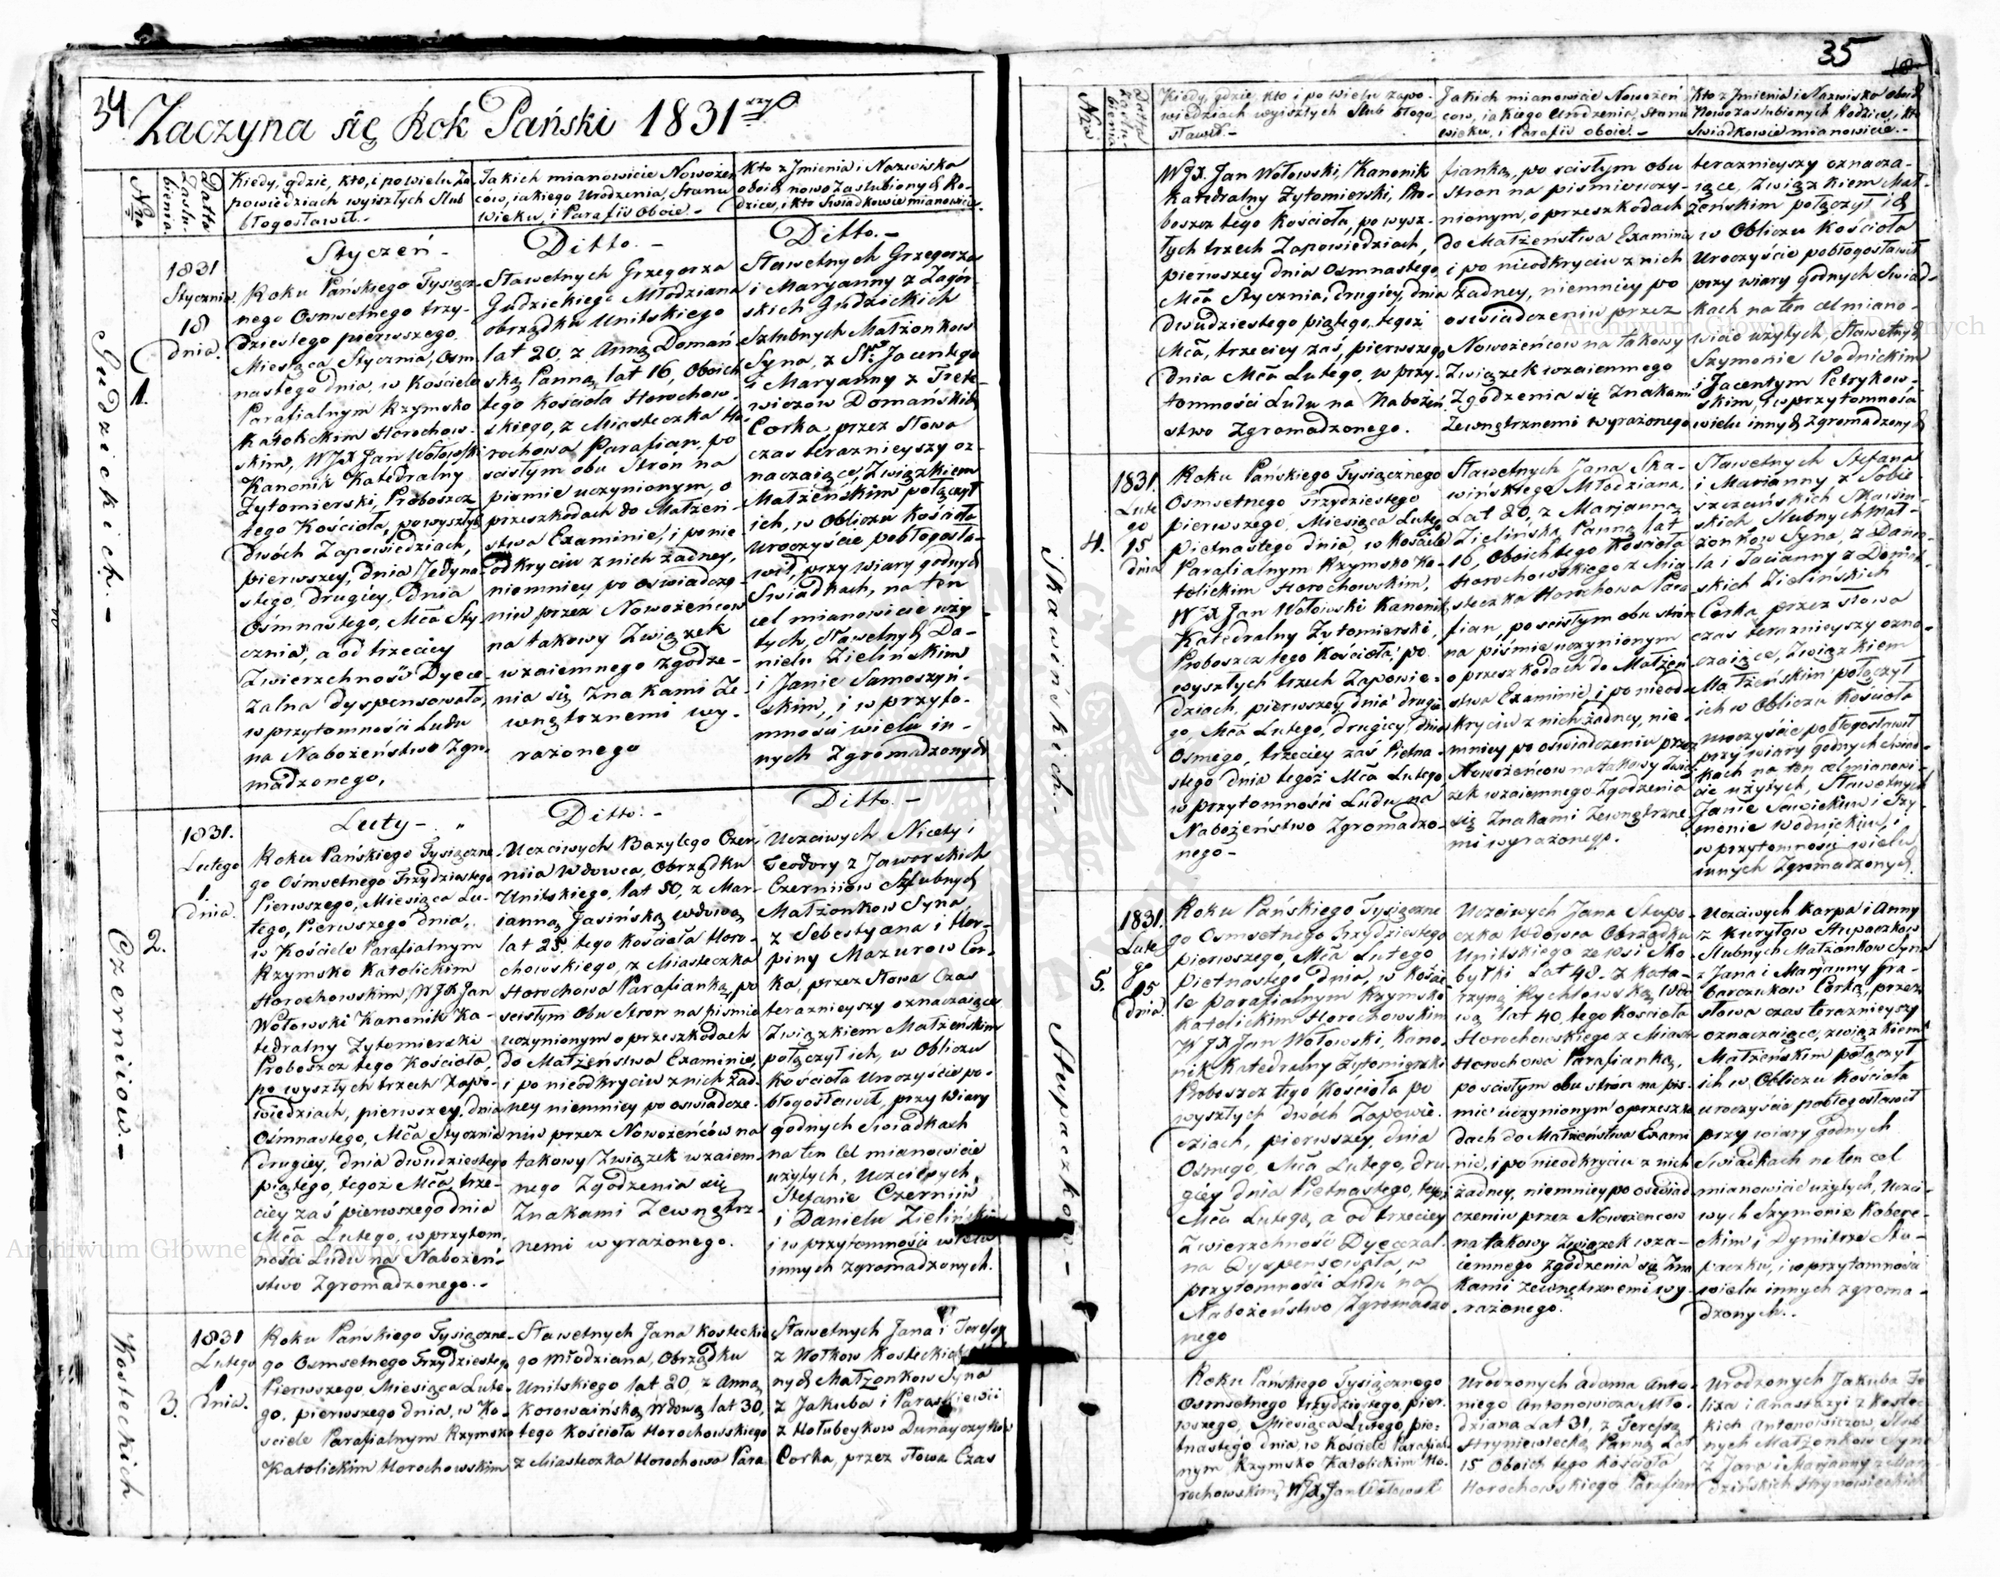 34
Zaczyna się Rok Pański 1831
Nro
Datta Zaślubienia
Kiedy, gdzie, kto, i po wielu Zapowiedziach wyiszłych Slub błogosławił.-
Jakich mianowicie Nowożeńcow, iakiego Urodzenia, Stanu
wieku, i Parafiv Oboie.-
Kto z Jmienia i Nazwiska
oboich nowo zaslubionych Rodzice, i kto Swiadkowie mianowicie.
Gudzickich.-
1.
1831
Stycznia
18
dnia.
Styczeń -
Roku Pańskiego Tysiącznego Osmsetnego trzydziestego pierwszego
Miesiąca Stycznia, Osmnastego dnia, w Kościele
Parafialnym Rzymsko
Katolickim Horochowskim, WJX Jan Wołowski
Kanonik Katedralny
Zytomierski, Proboszcz
tego Kościoła, po wyszłych
dwóch Zapowiedziach,
pierwszey, dnia Jedynastego, drugiey, dnia
Ośmnastego, Mca Stycznia, a od trzeciey
Zwierzchność Dyecezalna dyspensowała,
w przytomności Ludu
na Nabożeństwo Zgromadzonego,
Ditto.-
Sławetnych Grzegorza
Gudzickiego Młodziana
obrządku Unitskiego
lat 20, z Anną Domańską Panną, lat 16, Oboich
tego Kościoła Horochowskiego, z Miasteczka Horochowa Parafian, po
scisłym obu Stron na
pismie uczynionym, o
przeszkodach do Małżeństwa Examinie, i po nieodkryciu z nich żadney,
niemniey po oswiadczeniu przez Nowożeńcow
na takowy Związek
wzaiemnego zgodzenia się Znakami Zewnętrznemi wyrażonego
Ditto.-
Sławetnych Grzegorza
i Maryanny z Zagórskich Gudzickich
Szlubnych Małżonkow
Syna, z St: Jacentego
i Maryanny z Tretewiczow Domańskich
Corką, przez słowa
czas teraznieyszy oznaczaiące, Związkiem
Małżeńskim połączył
ich, w Obliczu Kościoła
Uroczyście pobłogosławił, przy wiary godnych
Swiadkach, na ten
cel mianowicie użytych, Sławetnych Danielu Zielińskim
i Janie Samoszyńskim, i w przytomności wielu innych Zgromadzonych
Czerniiow.-
2.
1831.
Lutego
1
dnia.
Luty -
Roku Pańskiego Tysiącznego Ośmsetnego Trzydziestego
Pierwszego, Miesiąca Lutego, Pierwszego dnia,
w Kościele Parafialnym
Rzymsko Katolickim
Horochowskim, WJX Jan
Wołowski Kanonik Katedralny Zytomierski
Proboszcz tego Kościoła,
po wyszłych trzech Zapowiedziach, pierwszey, dnia
Osmnastego, Mca Stycznia
drugiey, dnia dwudziestego
piątego, tegoż Mca, trzeciey zaś pierwszego dnia
Mca Lutego, w przytomności Ludu na Nabożeństwo Zgromadzonego.-
Ditto.-
Uczciwych Bazylego Czerniia Wdowca, Obrządku
Unitskiego, lat 50, z Marianną Jasińską wdową
lat 25 tego Kościoła Horochowskiego, z Miasteczka
Horochowa Parafianką, po
scisłym Obu Stron na pismie
uczynionym o przeszkodach
do Małżeństwa Examinie,
i po nieodkryciu z nich żadney niemniey po oswiadczeniu przez Nowożeńców na
takowy Związek wzaiemnego Zgodzenia się
Znakami Zewnętrznemi wyrażonego.
Ditto.-
Uczciwych Nicety i
Teodory z Jaworskich
Czerniiow Szlubnych
Małżonkow Syna,
z Sebestyana i Horpiny Mazurow Corka, przez słowa Czas
teraznieyszy oznaczaiące
Związkiem Małżeńskim
połączył ich, w Obliczu
Kościoła Uroczyście pobłogosławił, przy Wiary
godnych Swiadkach
na ten Cel mianowicie
użytych, Uczciwych
Stefanie Czerniiu
i Danielu Zielińskim
i w przytomności wielu
innych zgromadzonych.
Kosteckich.
3.
1831
Lutego
1
dnia.
Roku Pańskiego Tysiącznego Osmsetnego Trzydziestego
Pierwszego, Miesiąca Lutego, pierwszego dnia, w Kościele Parafialnym Rzymsko
Katolickim Horochowskim
Sławetnych Jana Kosteckiego Młodziana, Obrządku
Unitskiego lat 20, z Anną
Korowaińską Wdową lat 30,
tego Kościoła Horochowskiego
z Miasteczka Horochowa Para
Sławetnych Jana i Teressy
z Wołkow Kosteckich
nych Małżonkow Syna
z Jakuba i Paraskiewii
z Hołubeykow Dunayczykow
Corka, przez słowa Czas
35
Nro
Datta Zaślubienia
Kiedy, gdzie, kto i po wielu zapowiedziach wyiszłych Slub błogosławił.-
Jakich mianowicie Nowożeńcow, iakiego Urodzenia, Stanu
wieku, i Parafiv oboie.-
Kto z Jmienia i Nazwiska oboich
Nowozaslubionych Rodzice, i kto
Swiadkowie mianowicie.-
WJX. Jan Wołowski, Kanonik
Katedralny Zytomierski, Proboszcz tego Kościoła, po wyszłych trzech Zapowiedziach,
pierwszey dnia Osmnastego
Mca Stycznia, drugiey, dnia
dwudziestego piątego, tegoż
Mca, trzeciey zaś, pierwszego
dnia Mca Lutego, w przytomności Ludu na Nabożeństwo Zgromadzonego.
fianką, po scisłym obu
Stron na piśmie uczynionym, o przeszkodach
do Małżeństwa Examinie
i po nieodkryciu z nich
żadney, niemniey po
oswiadczeniu przez
Nowożeńcow na takowy
Związek wzaiemnego
Zgodzenia się Znakami
Zewnętrznemi wyrażonego
teraznieyszy oznaczaiące, Związkiem Małżeńskim połączył ich
w Obliczu Kościoła
Uroczyście pobłogosławił
przy wiary godnych Swiadkach na ten cel mianowicie użytych, Sławetnych
Szymonie Wodnickim
i Jacentym Petrykowskim, i w przytomności
wielu innych Zgromadzonych
Skawińskich.-
4.
1831.
Lutego
15
dnia
Roku Pańskiego Tysiącznego
Osmsetnego Trzydziestego
pierwszego, Miesiąca Lutego
Piętnastego dnia, w Kościele
Parafialnym Rzymsko Katolickim Horochowskim,
WJX Jan Wołowski Kanonik
Katedralny Zytomierski,
Proboszcz tego Kościoła, po
wyszłych trzech Zapowiedziach, pierwszey dnia drugiego, Mca Lutego, drugiey, dnia
Osmego, trzeciey zaś Piętnastego dnia tegoż Mca Lutego
w przytomności Ludu na
Nabożeństwo Zgromadzonego -
Sławetnych Jana Skawińskiego Młodziana,
Lat 20, z Marjanną
Zielińską Panną lat
16, Oboich tego Kościoła
Horochowskiego z Miasteczka Horochowa Parafian, po scisłym obu stron
na piśmie uczynionym
o przeszkodach do Małżeństwa Examinie, i po nieodkryciu z nich żadney, niemniey po oświadczeniu przez
Nowożeńcow na takowy Związek wzaiemnego Zgodzenia
się Znakami Zewnętrznemi wyrażonego.
Sławetnych Stefana
i Marianny z Sobieszczańskich Skawińskich Slubnych Małżonkow Syna, z Daniela i Tacianny z Domańskich Zielińskich
Corką, przez słowa
czas teraznieyszy oznaczaiące, Związkiem
Małżeńskim połączył
ich w Obliczu Kościoła
uroczyście pobłogosławił
przy wiary godnych Swiadkach na ten cel mianowicie użytych, Sławetnych
Janie Sawickim i Szymonie Wodnickim, i
w przytomności wielu
innych Zgromadzonych.
Stupaczkow.-
5.
1831.
Lutego
15
dnia.
Roku Pańskiego Tysiącznego Osmsetnego Trzydziestego
pierwszego, Mca Lutego
Piętnastego dnia, w Kościele parafialnym Rzymsko
Katolickim Horochowskim
WJX Jan Wołowski, Kanonik Katedralny Zytomierski
Proboszcz tego Kościoła po
wyszłych dwóch Zapowiedziach, pierwszey, dnia
Osmego, Mca Lutego, drugiey dnia Piętnastego, tegoż
Mca Lutego, a od trzeciey
Zwierzchność Dyecezalna Dyspensowała, w
przytomności Ludu na
Nabożeństwo Zgromadzonego
Uczciwych Jana Stupaczka Wdowca Obrządku
Unitskiego ze wsi Skobyłki Lat 48. z Katarzyną Rychłowską Wdową lat 40, tego Kościoła
Horochowskiego z Miast
Horochowa Parafianką,
po scisłym obu strón na pismie uczynionym o przeszkodach do Małżeństwa Examinie, i po nieodkryciu z nich
żadney, niemniey po oswiadczeniu przez Nowożencow
na takowy Związek wzaiemnego zgodzenia się Znakami zewnętrznemi wyrażonego.
Uczciwych Karpa i Anny
z Kuryłow Stupaczkow
Slubnych Małżonkow Syna
z Jana i Marjanny Grabarczukow Corką, przez
słowa czas teraznieyszy
oznaczaiące, związkiem
Małżeńskim połączył
ich w Obliczu Kościoła
uroczyście pobłogosławił
przy wiary godnych
Swiadkach na ten cel
mianowicie użytych, Uczciwych Szymonie Koberckim i Dymitrze Stupaczku, i w przytomności
wielu innych zgromadzonych.
Roku Pańskiego Tysiącznego
Osmsetnego trzydziestego, pierwszego, Miesiąca Lutego, piętnastego dnia, w Kościele Parafialnym Rzymsko Katolickim Horochowskim, WJX Jan Wołowski
Urodzonych Adama Antoniego Antonowicza Młodziana Lat 31, z Teressą
Hryniewiecką Panną Lat
15 Oboich tego Kościoła
Horochowskiego Parafian
Urodzonych Jakuba Felixa i Anastazyi z Kosteckich Antonowiczow, Slubnych Małżonkow Syna
z Jana i Marjanny z
Hryniewieckich